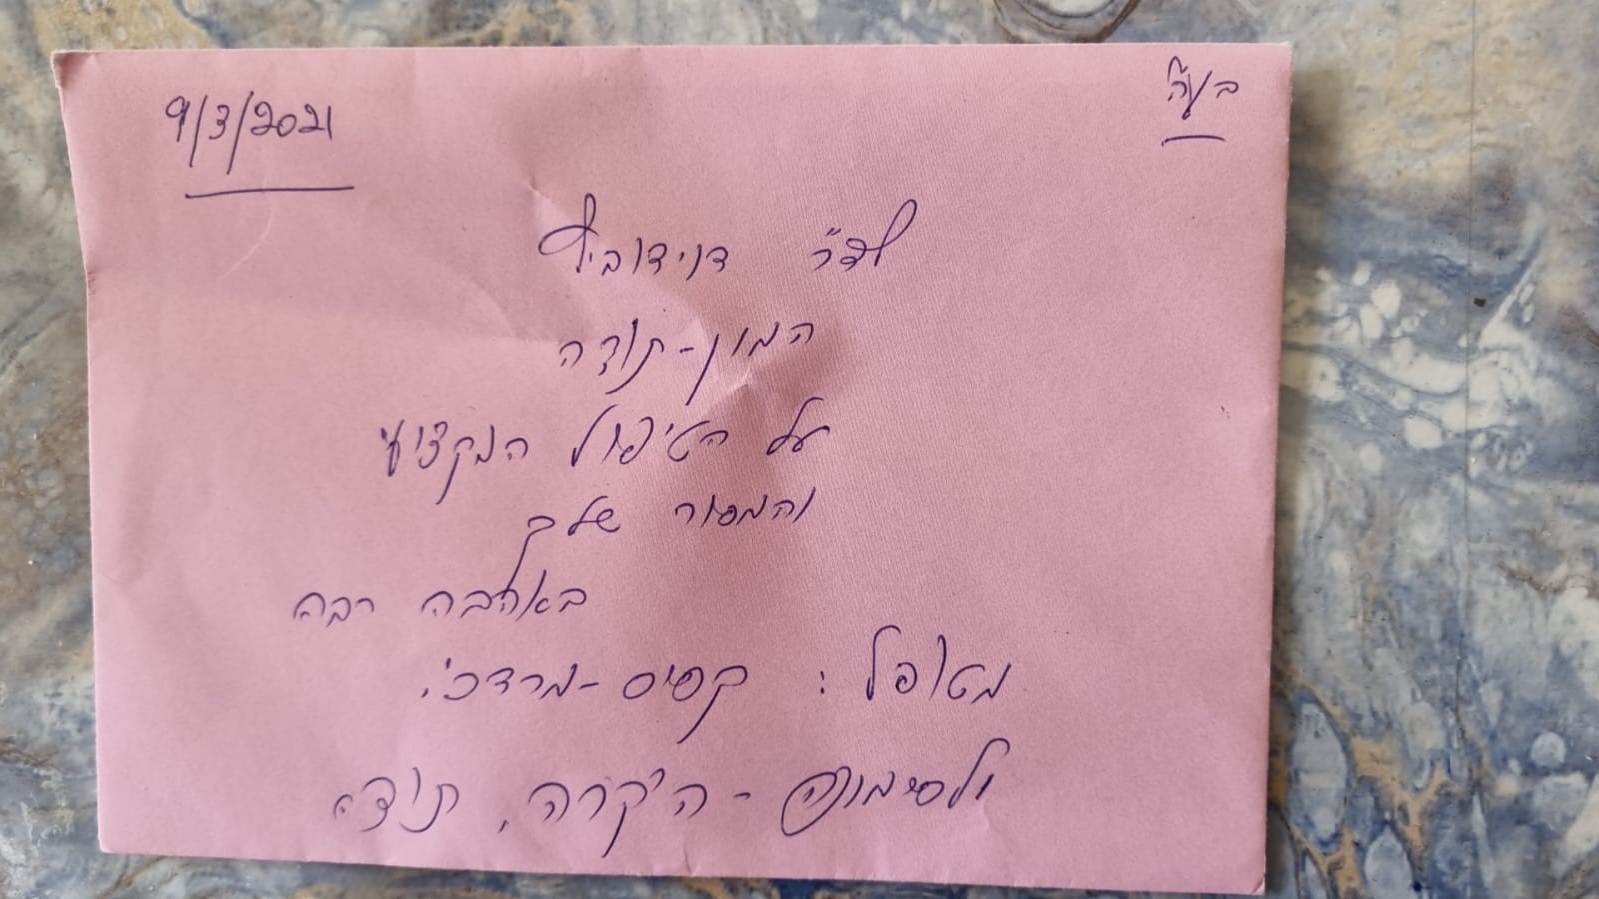 בע"ה
9/3/2021
לד"ר דוידוביץ
המון-תודה
על הטיפול המקצועי
והמסור שלך
באהבה רבה
מטופל: קסיס-מרדכי.
ולסימונה - היקרה, תודה